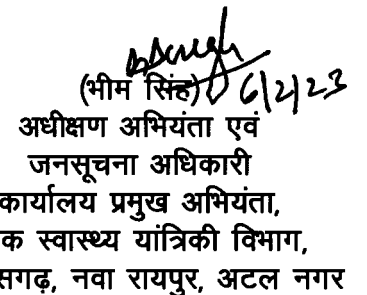 6/2/23
(भीम सिंह)
अधीक्षण अभियंता एवं
जनसूचना अधिकारी
कार्यालय प्रमुख अभियंता,
क स्वास्थ्य यांत्रिकी विभाग,
सगढ़, नवा रायपुर, अटल नगर